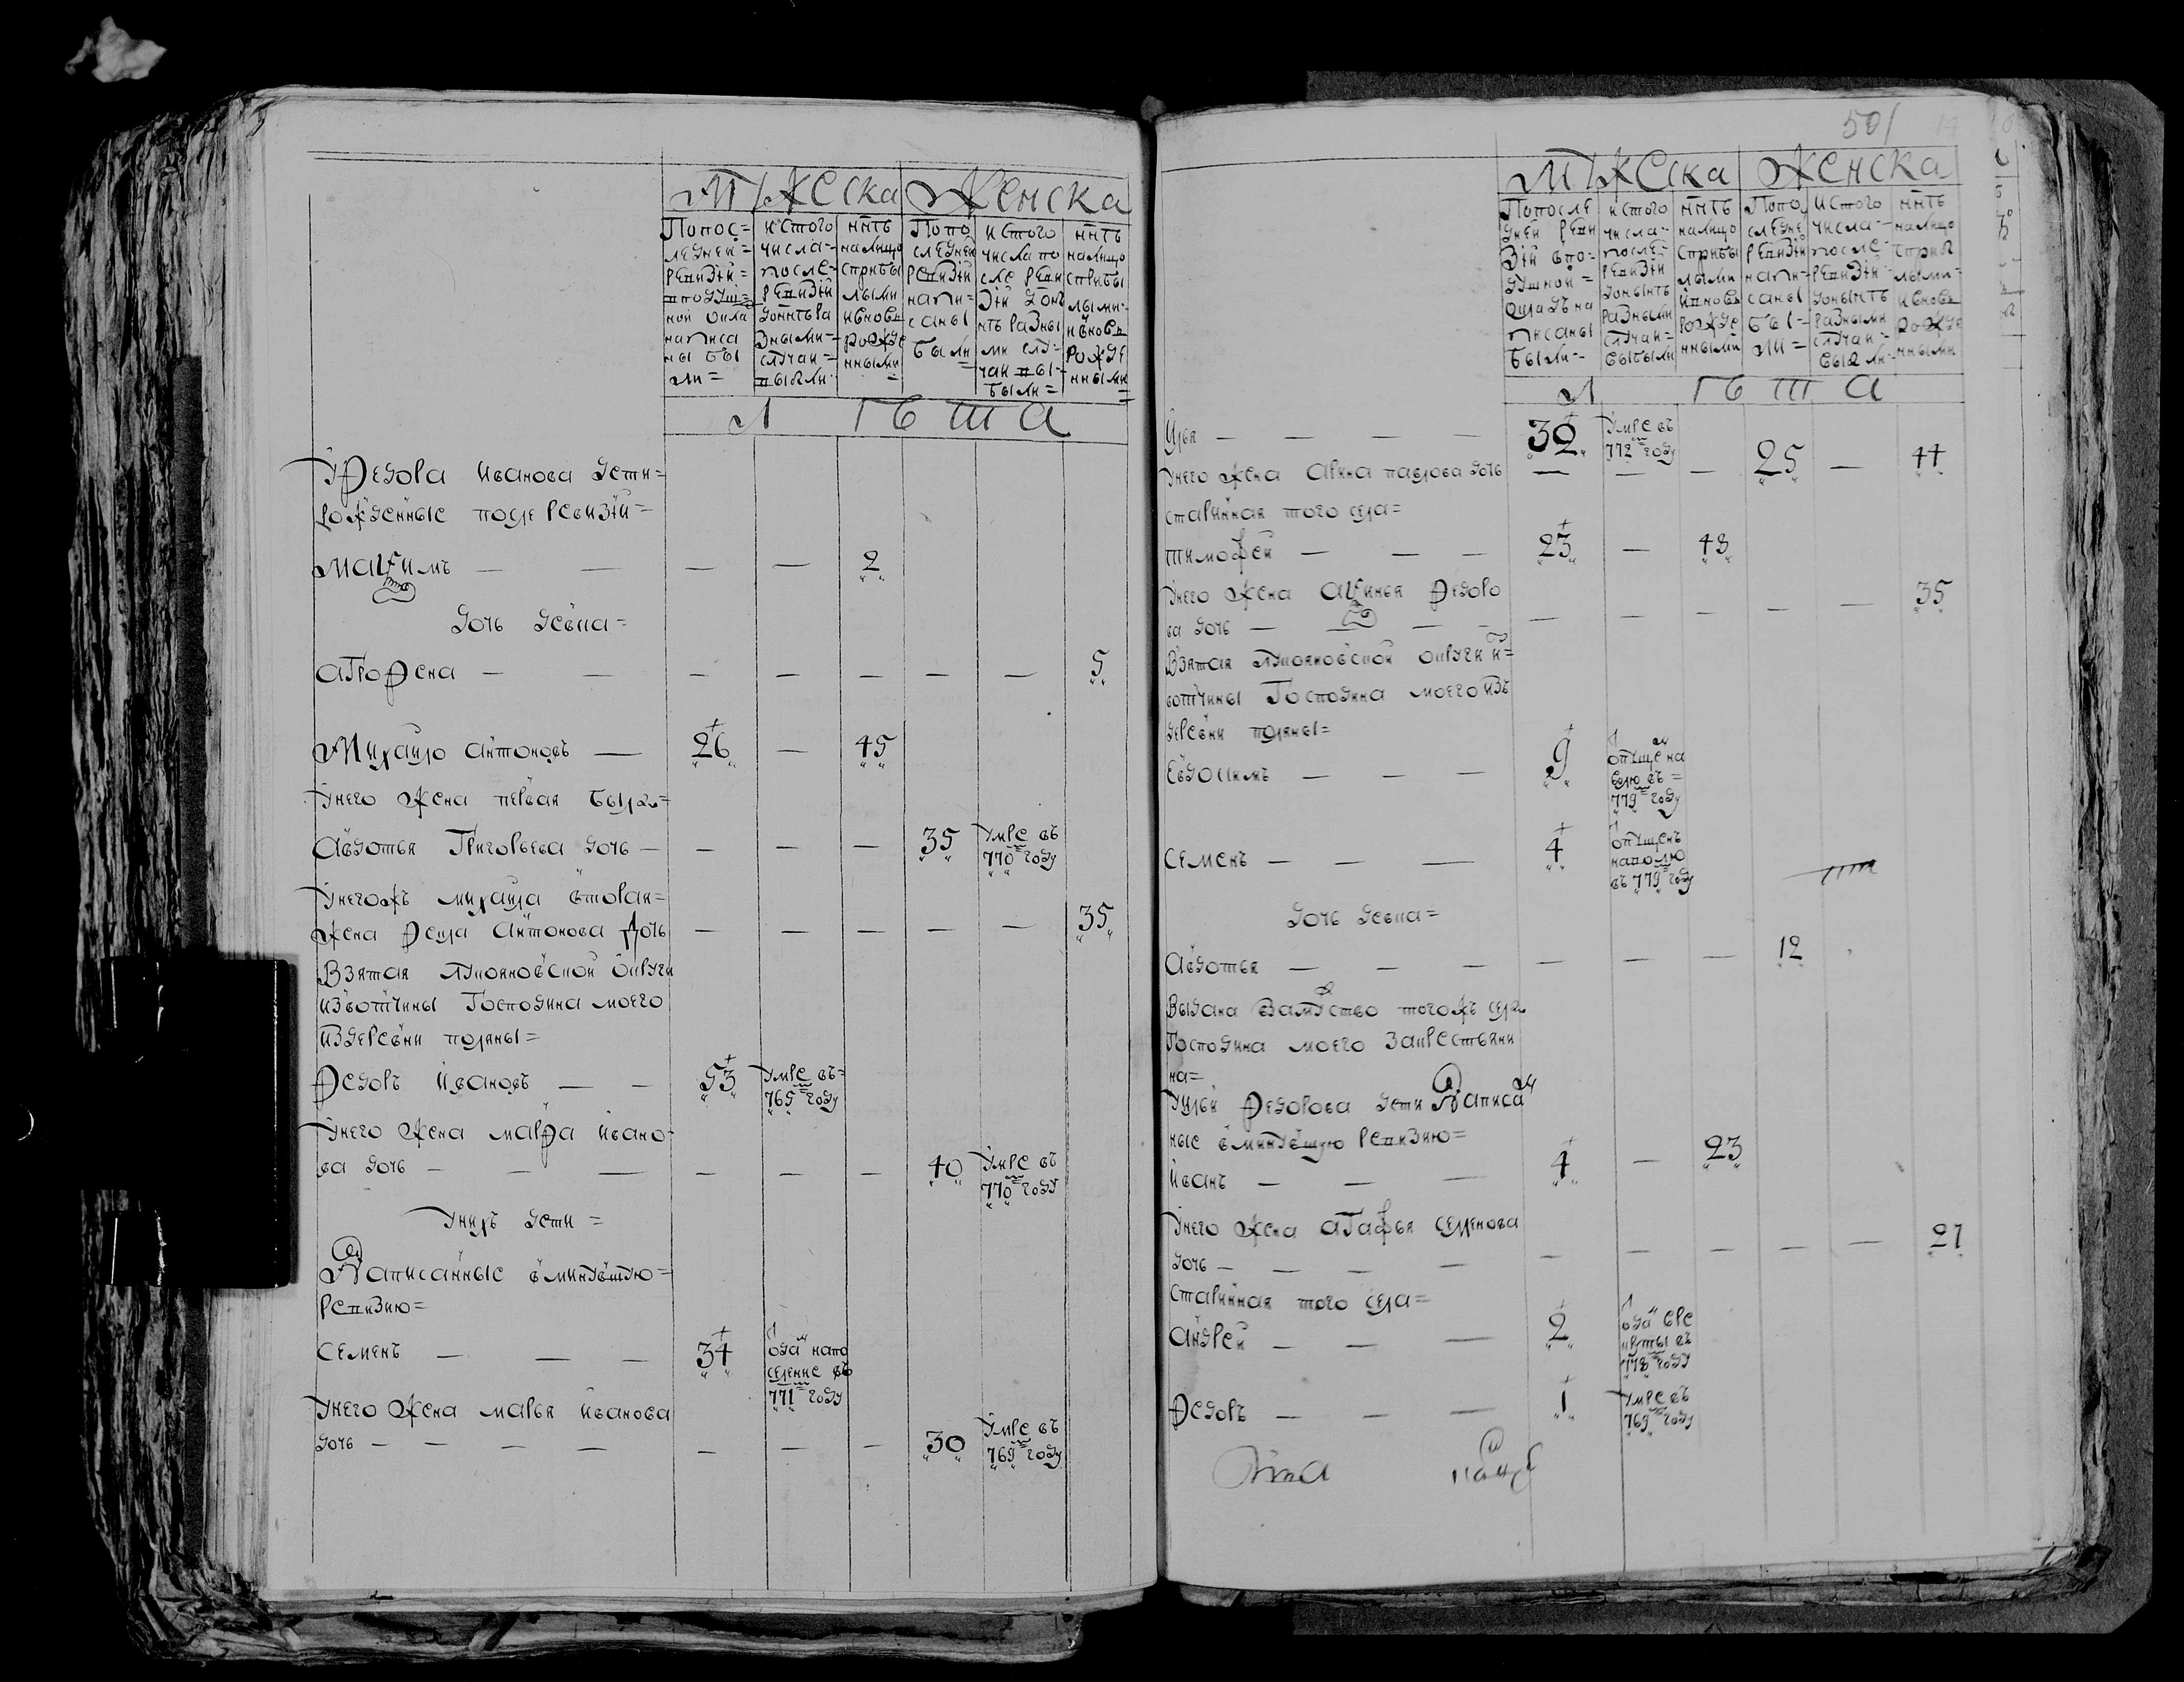 501
Мужеска Женска
Попос=
ледней=
ревизіи=
и подуш=
ной окла
написа
ны бы
ли=
и стого
числа=
после=
ревизіи
до ннѣ ра
зными=
случаи=
выбыли
ннѣ
налицо
сприбы
лыми
и вновь
рожде
нными
Попо
следней
ревизіи
напи=
саны
были
и стого
числа по
сле реви
зіи до н
нѣ разны
ми слу=
чаи вы=
были=
ннѣ
налицо
сприбы
лыми
и вновь
рожде
нными
Л ѣ т а
У Федора Иванова дети=
рожденные после ревизіи=
Маѯимъ — — — — 2
дочь девка=
Агрофена — — — — — — — 5
Михайло Антоновъ — 26 — 45
У него жена первая была=
Авдотья Григорьева дочь — — — — 35 умре въ
770 году
У него жъ Михайла вторая=
жена Фекла Антонова дочь — — — — — 35
Взятая Лукояновской округи
из вотчины Господина моего
из деревни поляны=
Федоръ Ивановъ — — 53 умре въ=
765 году
У него жена Марфа Ивано=
ва дочь — — — — — — 40 умре въ
770 году
У нихъ дети=
Написанные в минувшую=
ревизию=
Семенъ — — — 34 отдан напо
селение въ
771 году
У него жена Марья Иванова
дочь — — — — — — — 30 умре въ
769 году
Мужеска Женска
Попосле
дней реви
зіи впо=
душной=
окладъ на
писаны
были=
и стого
числа=
после=
ревизіи
до ныне
разными
случаи=
выбыли
ннѣ
налицо
сприбы
лыми
и вновь
рожде
нными
Попо
следне
ревизіи
напи=
саны
бы=
ли=
и стого
числа=
после=
ревизіи
до нынѣ
разными
случаи=
выбыли
ннѣ
налицо
сприб
лыми=
и вновь
рожде
нными
Л ѣ т а
Илья — — — — 32 умре въ
772 году
У него жена Арина павлова дочь — — — 25 — 44
старинная того села=
тимофеи — — — 23 — 43
У него жена Аѯинья Федоро
ва дочь — — — — — — — — — 35
Взятая Лукояновской округи и=
вотчины Господина моего изъ
деревни поляны=
Евдокимъ — — — 9 отпущен на
волю въ=
779 году
Семенъ — — — 4 отпущенъ
на волю
въ 779 году
дочь девка=
Авдотья — — — — — — 12
Выдана взамужство тогожъ села
Господина моего за крестьяни
на=
У Ильи Федорова дети Написан
ные в минувшую ревизию=
Иванъ — — — 4 — 23
У него жена Агафья Семенова
дочь — — — — — — — — — 27
Старинная того села=
Андреи — — — 2 отдан в ре
круты въ
778 году
Федоръ — — — 1 умре въ
769 году